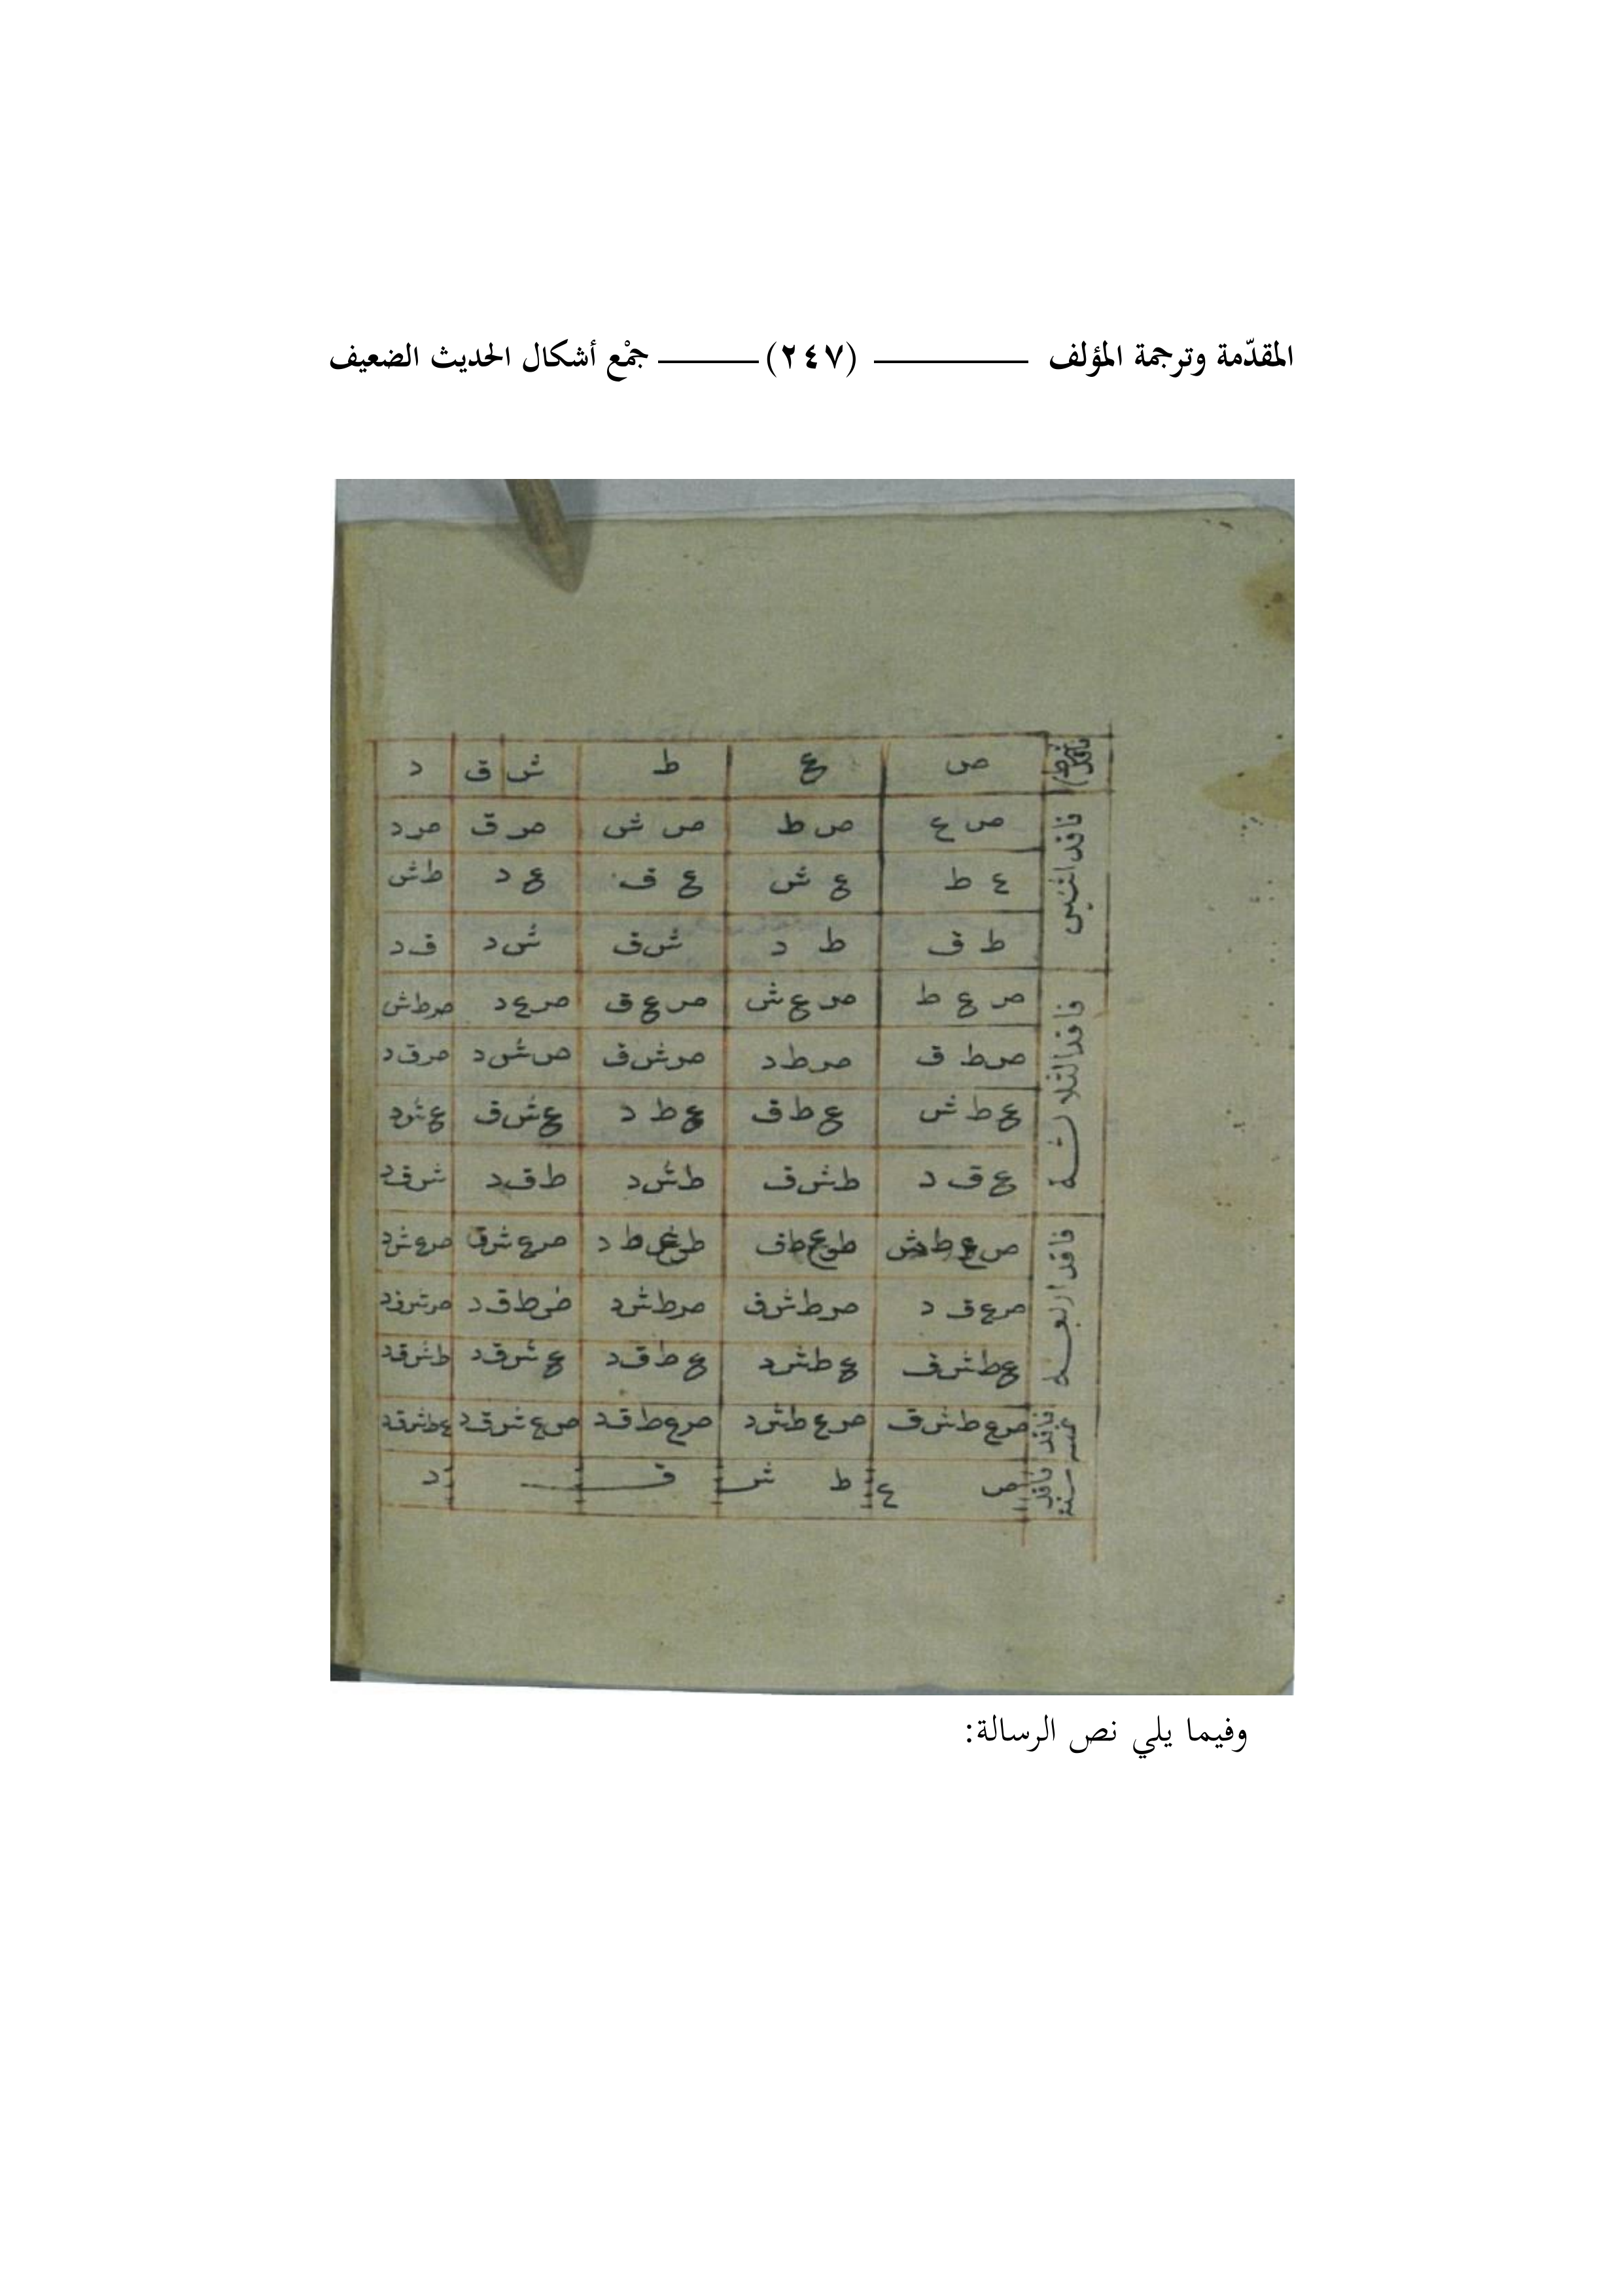 المقدّمة وترجمة المؤلف (٢٤٧) جمْع أشكال الحديث الضعيف
ص ع ط ش ق د
فاقد اثنين
ص ع ص ط ص ش ص ق ص د
ع ط ع ش ع ق ع د ط ش
ط ق ط د ش ق ش د ق د
فاقد الثلاثة
ص ع ط ص ع ش ص ع ق ص ع د ص ط ش
ص ط ق ص ط د ص ش ق ص ش د ص ق د
ع ط ش ع ط ق ع ط د ع ش ق ع ش د
ع ق د ط ش ق ط ش د ط ق د ش ق د
فاقد اربعة
ص ع ط ش ص ع ش ق ص ع ش د
ص ع ق د ص ط ش ق ص ط ش د ص ط ق د ص ش ق د
ع ط ش ق ع ط ش د ع ط ق د ع ش ق د ط ش ق د
فاقد
ص ع ط ش ق ص ع ط ش د ص ع ط ق د ص ع ش ق د ع ط ش ق د
فاقد ستة
ص ع ط ش ق د
وفيما يلي نص الرسالة: